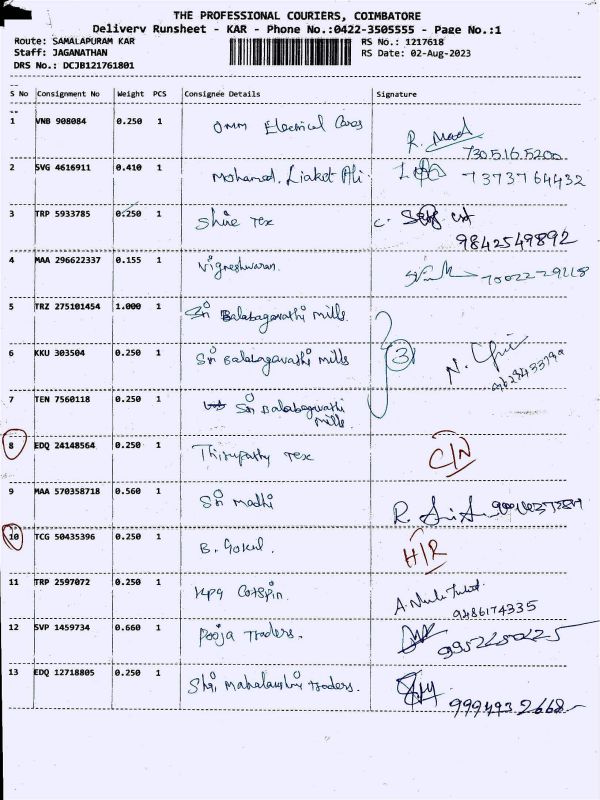 THE PROFESSIONAL COURIERS, COIMBATORE
Delivery Runsheet - KAR - Phone No.:0422-3505555 - Page No.:1
Route: SAMALAPURAM KAR RS No.: 1217618
Staff: JAGANATHAN RS Date: 02-Aug-2023
DRS No.: DCJB121761801
S No Consignment No Weight PCS Consignee Details Signature
1 VNB 908084 0.250 1 Omm Electrical
7305165200
2 SVG 4616911 0.410 1 Mohamed. Liaket Ali.
7373764432
3 TRP 5933785 0.250 1 Shine Tex
9842549892
4 MAA 296622337 0.155 1 Vigneshwaran.
5 TRZ 275101454 1.000 1 Sri Balabagavathi mills.
6 KKU 303504 0.250 1 Sri Balabagavathi mills 3
7 TEN 7560118 0.250 1 Sri Balabagavathi
mills.
8 EDQ 24148564 0.250 1 Thirupathy Tex C/N
9 MAA 570358718 0.560 1 Sri madhi
10 TCG 50435396 0.250 1 B. Gokul. H/R
11 TRP 2597072 0.250 1 Cotspin.
9486174335
12 SVP 1459734 0.660 1 Pooja Traders.
13 EDQ 12718805 0.250 1 Shri Mahalakshmi Traders.
9994932668